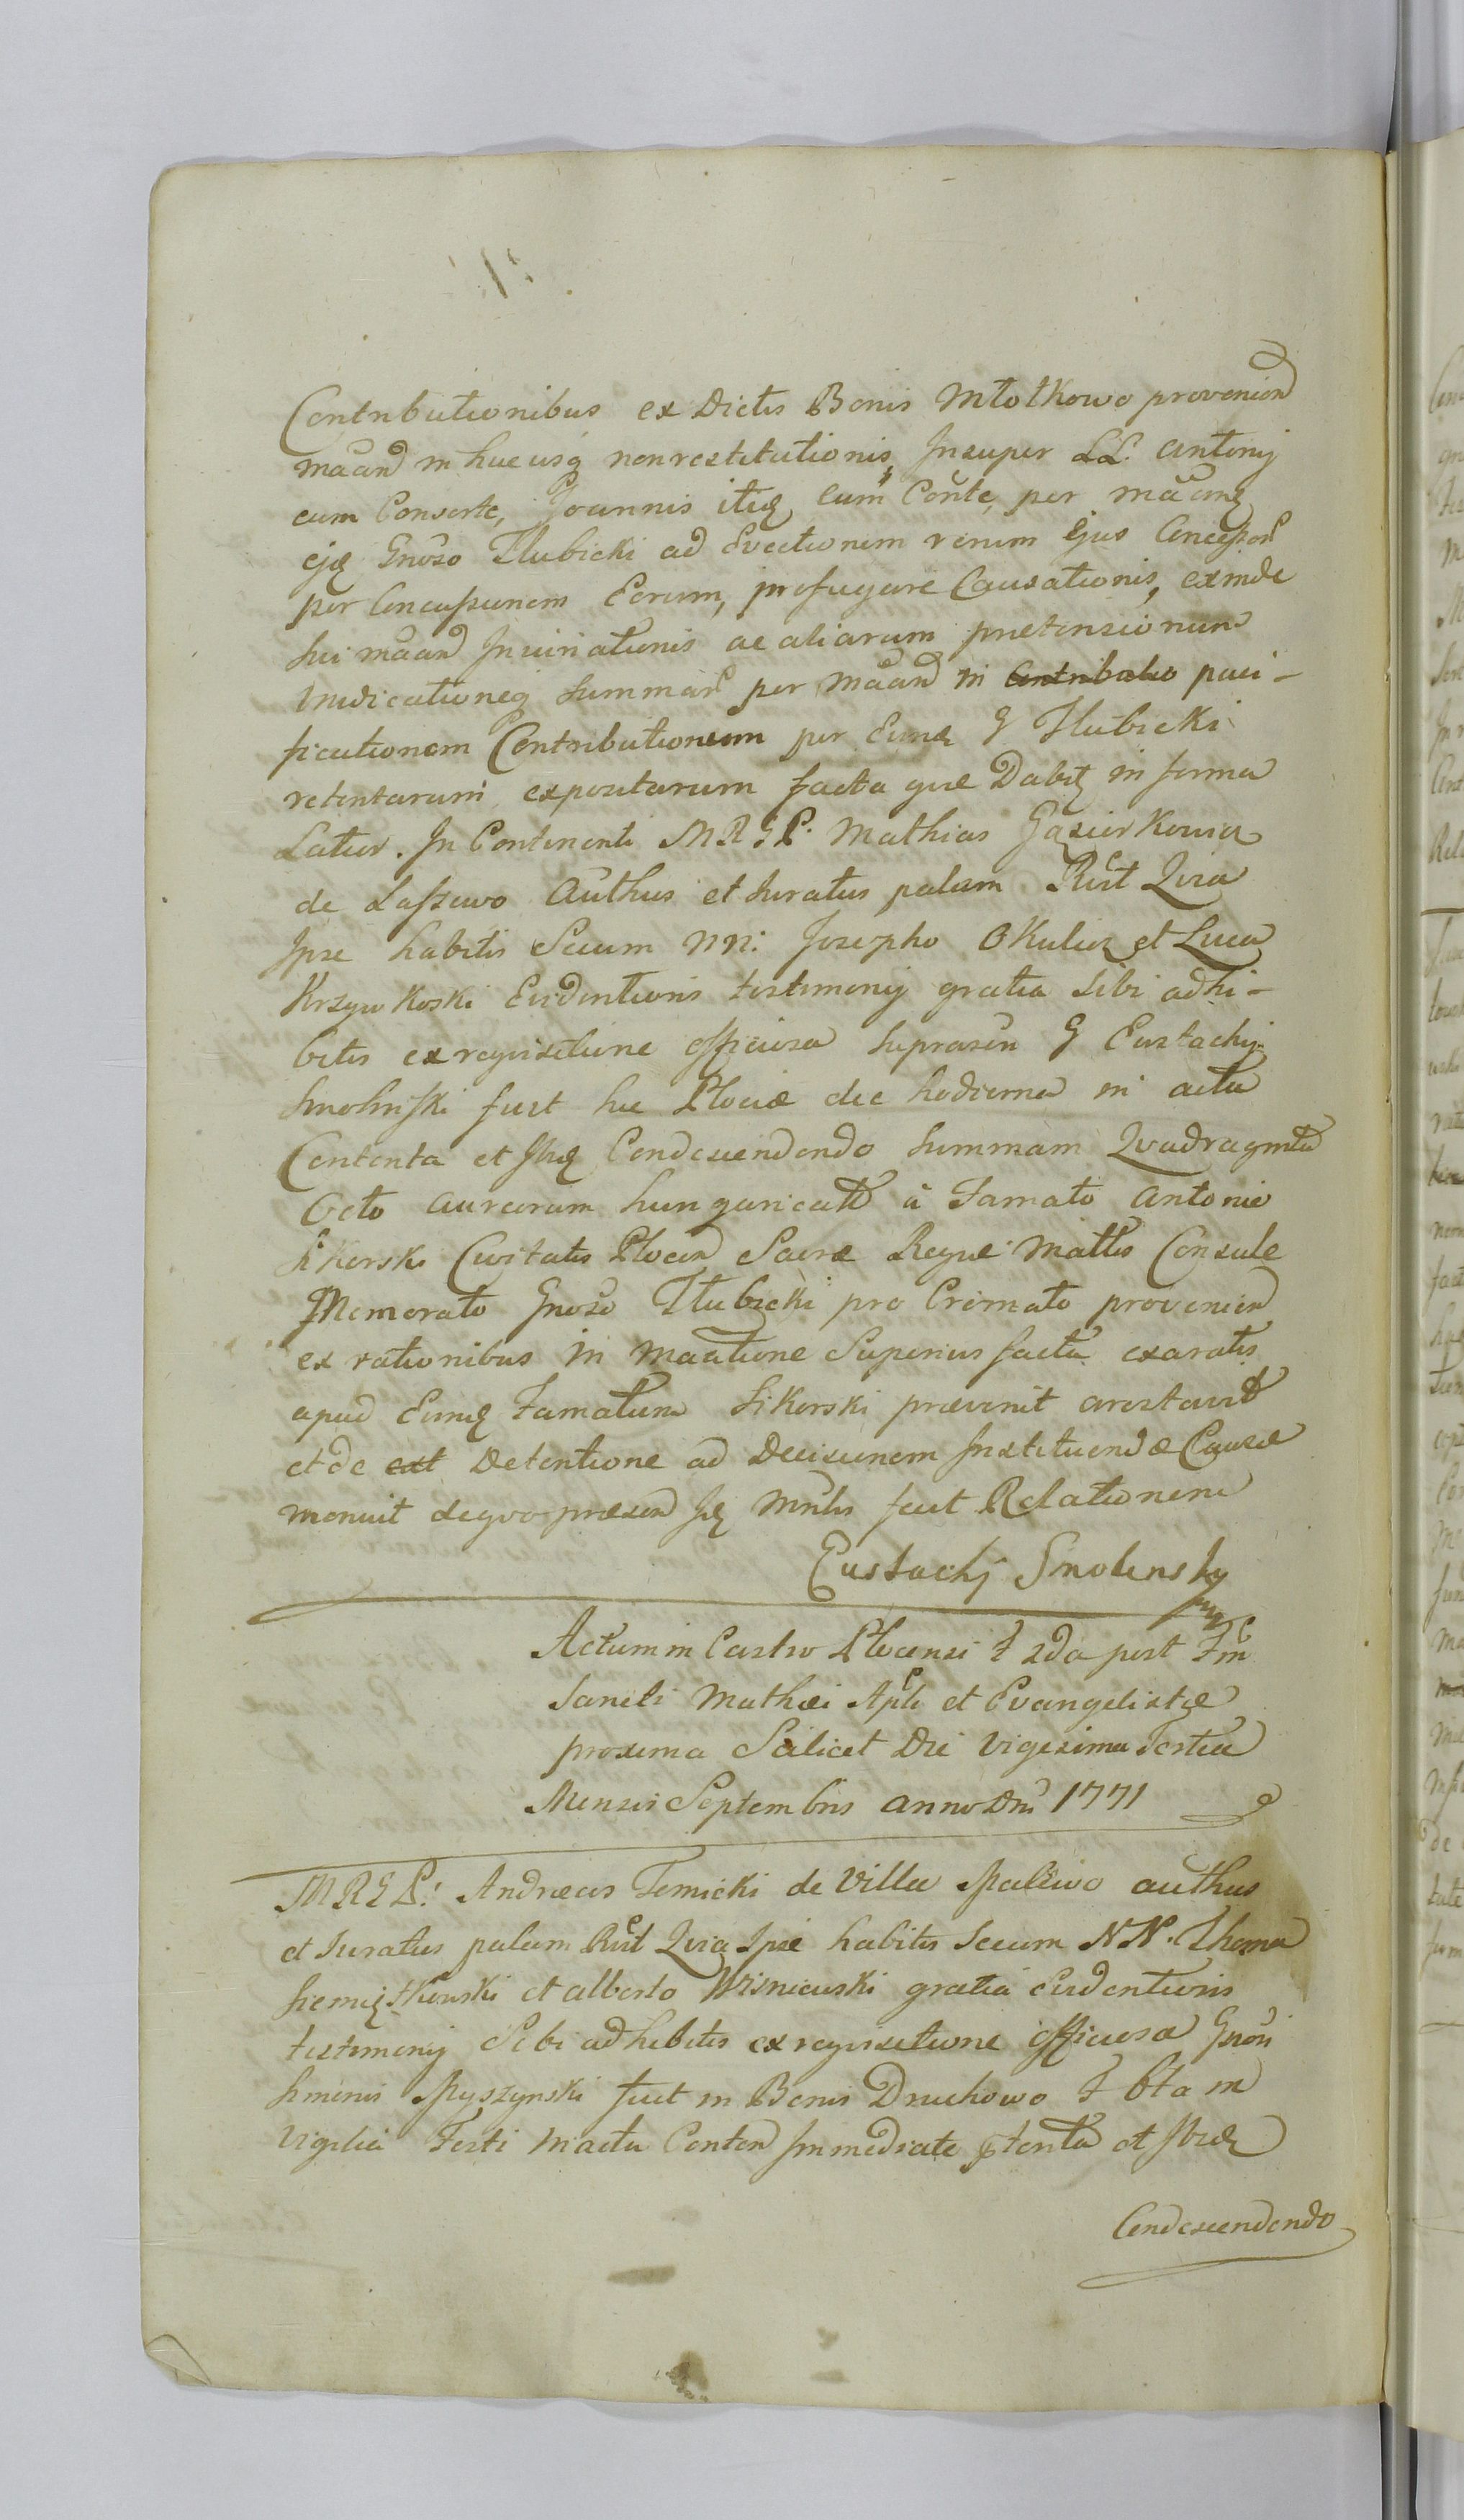 Contributionibus ex Dictis Bonis Młotkowo provenien
maand in hucusq nonrestitutionis, Insuper LL. Antonij
cum Consorte, Joannis itiq cum Conte, per maanq
ejq Gnoso Tłubicki ad Evectionem rerum Ejus
per Concussionem Eorum, profugare Causationis, exinde
sui maand Injuriationis ac aliarum pretensionum
summar per maand in Contributio paci-
ficationem Contributionum per Eunq G Tłubicki
retentarum expositarum facta que Dabit in forma
Latior. In Continenti MRGP. Mathias
de Laszewo Authus et Juratus palam Rcit Quia
Ipse habitis Secum NN: Josepho Okulicz et Luca
Krzywkoski Evidentioris testimonij gratia sibi adhi-
bitis ex requisitione officiosa suprascri G Eustachij
Smolinski fuit hic Plociæ die hodierna in actu
Contenta et Ibiq Condescendendo summam Quadraginta
Octo aureorum hungaricall à Famato Antonio
Sikorski Civitatis Plocen Sacræ Regiæ Mattis Consule
Memorato Gnoso Tłubicki pro Cremato provenien
ex rationibus in maatione Superius facta exaratis
apud Eunq Famatum Sikorski prævenit arestavit
et de ext Detentione ad Decisionem Instituendæ Causæ
monuit dequo præsen Iq Mnlis fecit Relationem
Eustachj Smolensky
mp
Actum in Castro Plocensi F 2da post Fm
Sancti Mathæi Apli et Evangelistæ
proxima Scilicet Die Vigesima Tertia
Mensis Septembris Anno Dni 1771
MRGP: Andreas Temicki de Villa Paliwo authus
et Juratus palam Rcit Quia Ipse habitis Secum NN. Thoma
et Alberto Wisniewski gratia Evidentioris
testimonij Sibi adhibitis ex requisitione officiosa Gnosi
Simonis Myszynski fuit in Bonis Druchowo F 6ta in
Vigilia Festi in actu Conten Immediate ptenta et Ibiq
Condescendendo